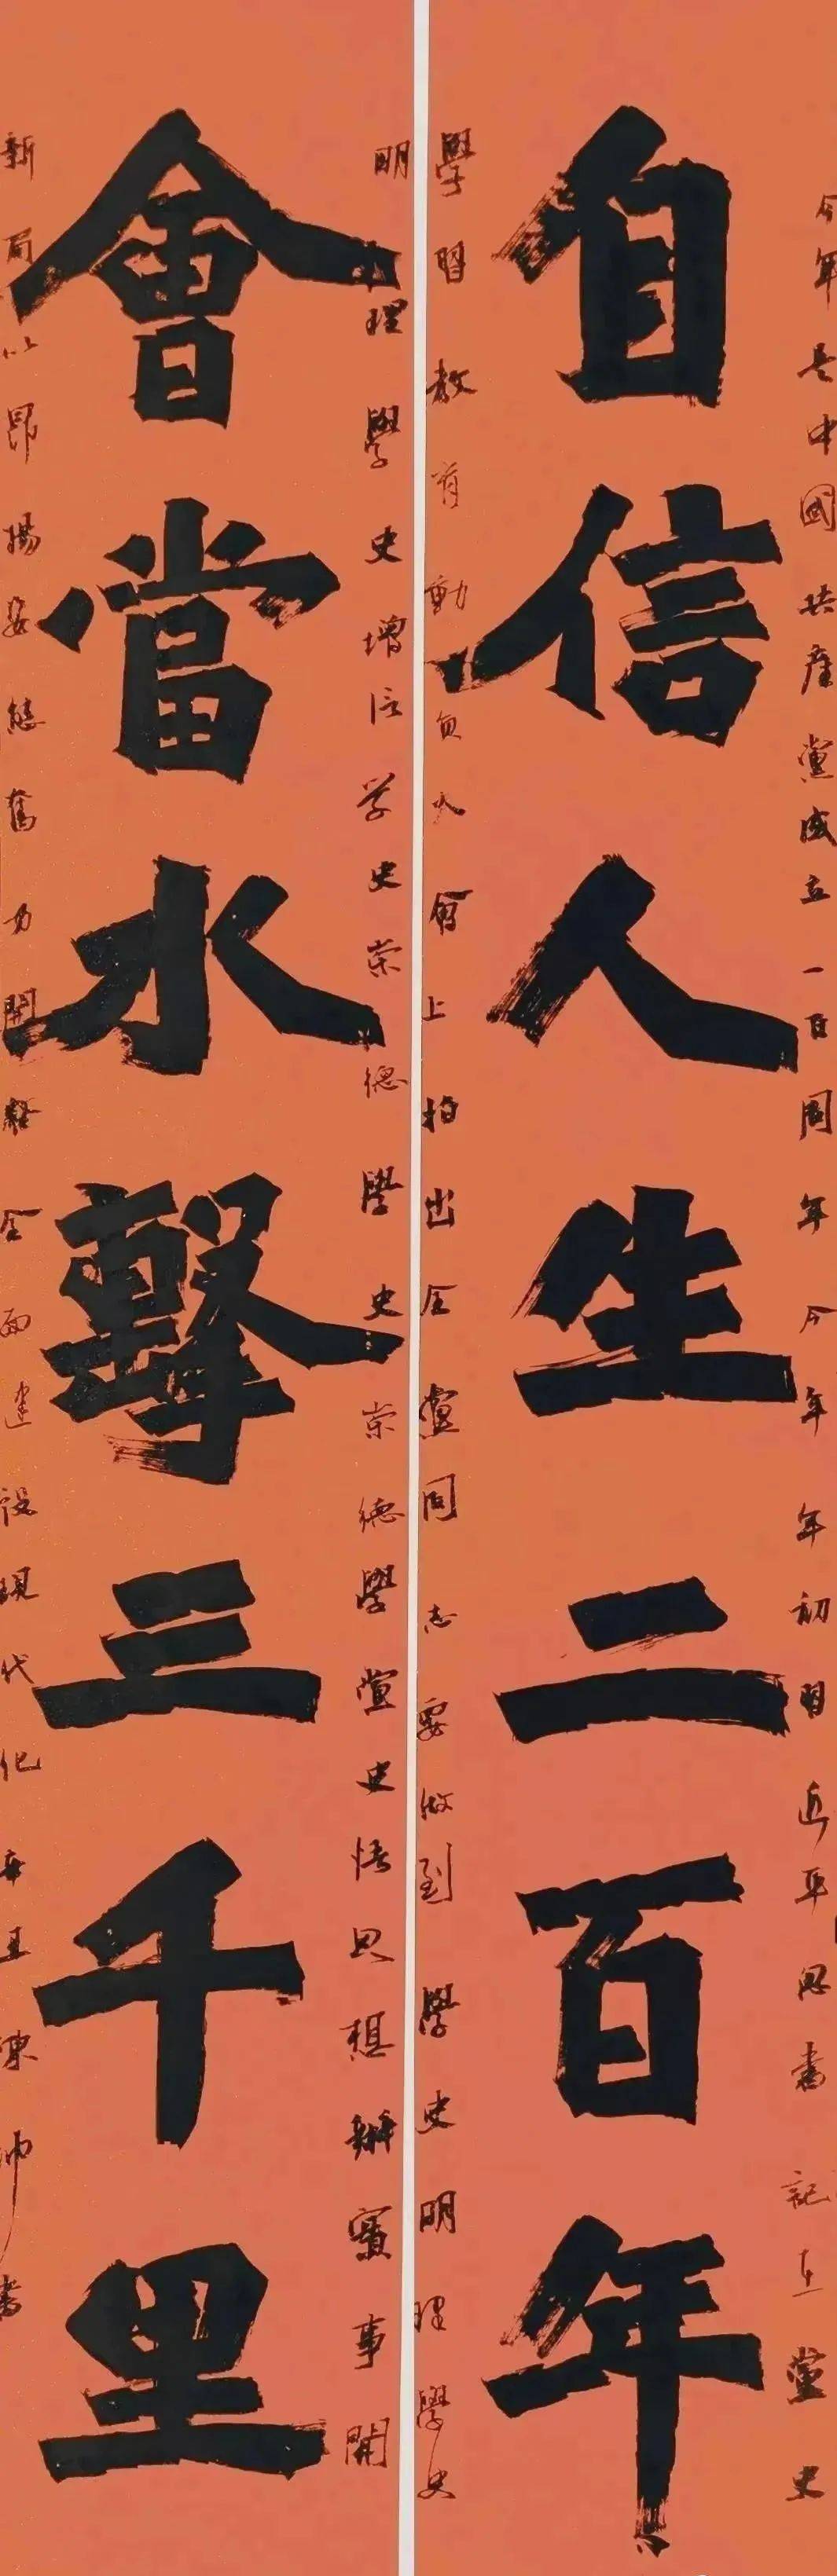 今年是中國共產黨成立一百周年今年年初習近平恩書記在黨史
自信人生二百年
學習教育動員大會上指出全黨同志要做到學史明理學史
明理學史增信學史崇德學史崇德學黨史悟思想辦實事開
會當水擊三千里
新局以昂揚姿態奮力開啓全面建設現代化辛丑陳帅書